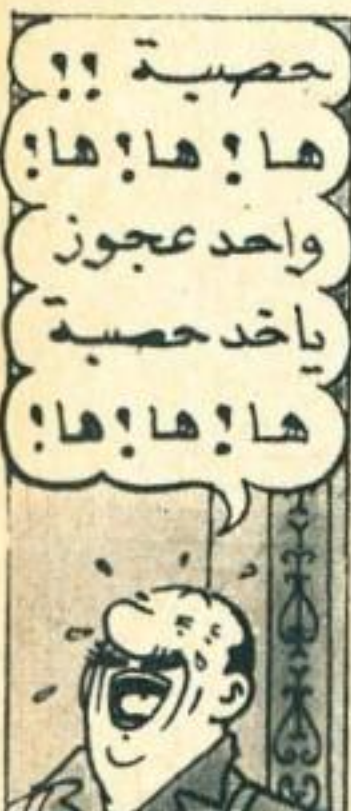 حصبة ؟؟
ها ! ها ! ها !
واحد عجوز
ياخد حصبة
ها ! ها ! ها !